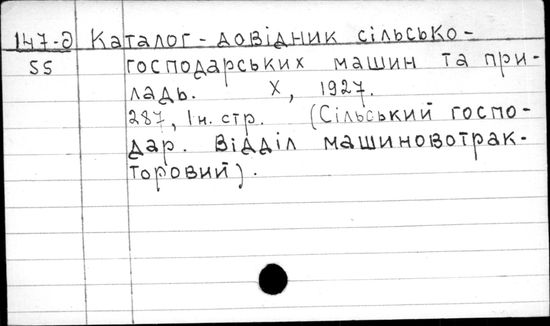 147-д Каталог-довідник сільсько-
55 господарських машин та при-
ладь. Х, 1927.
287, 1 н. стр. (Сільський госпо-
дар. Відділ машиновотрак-
торовий).